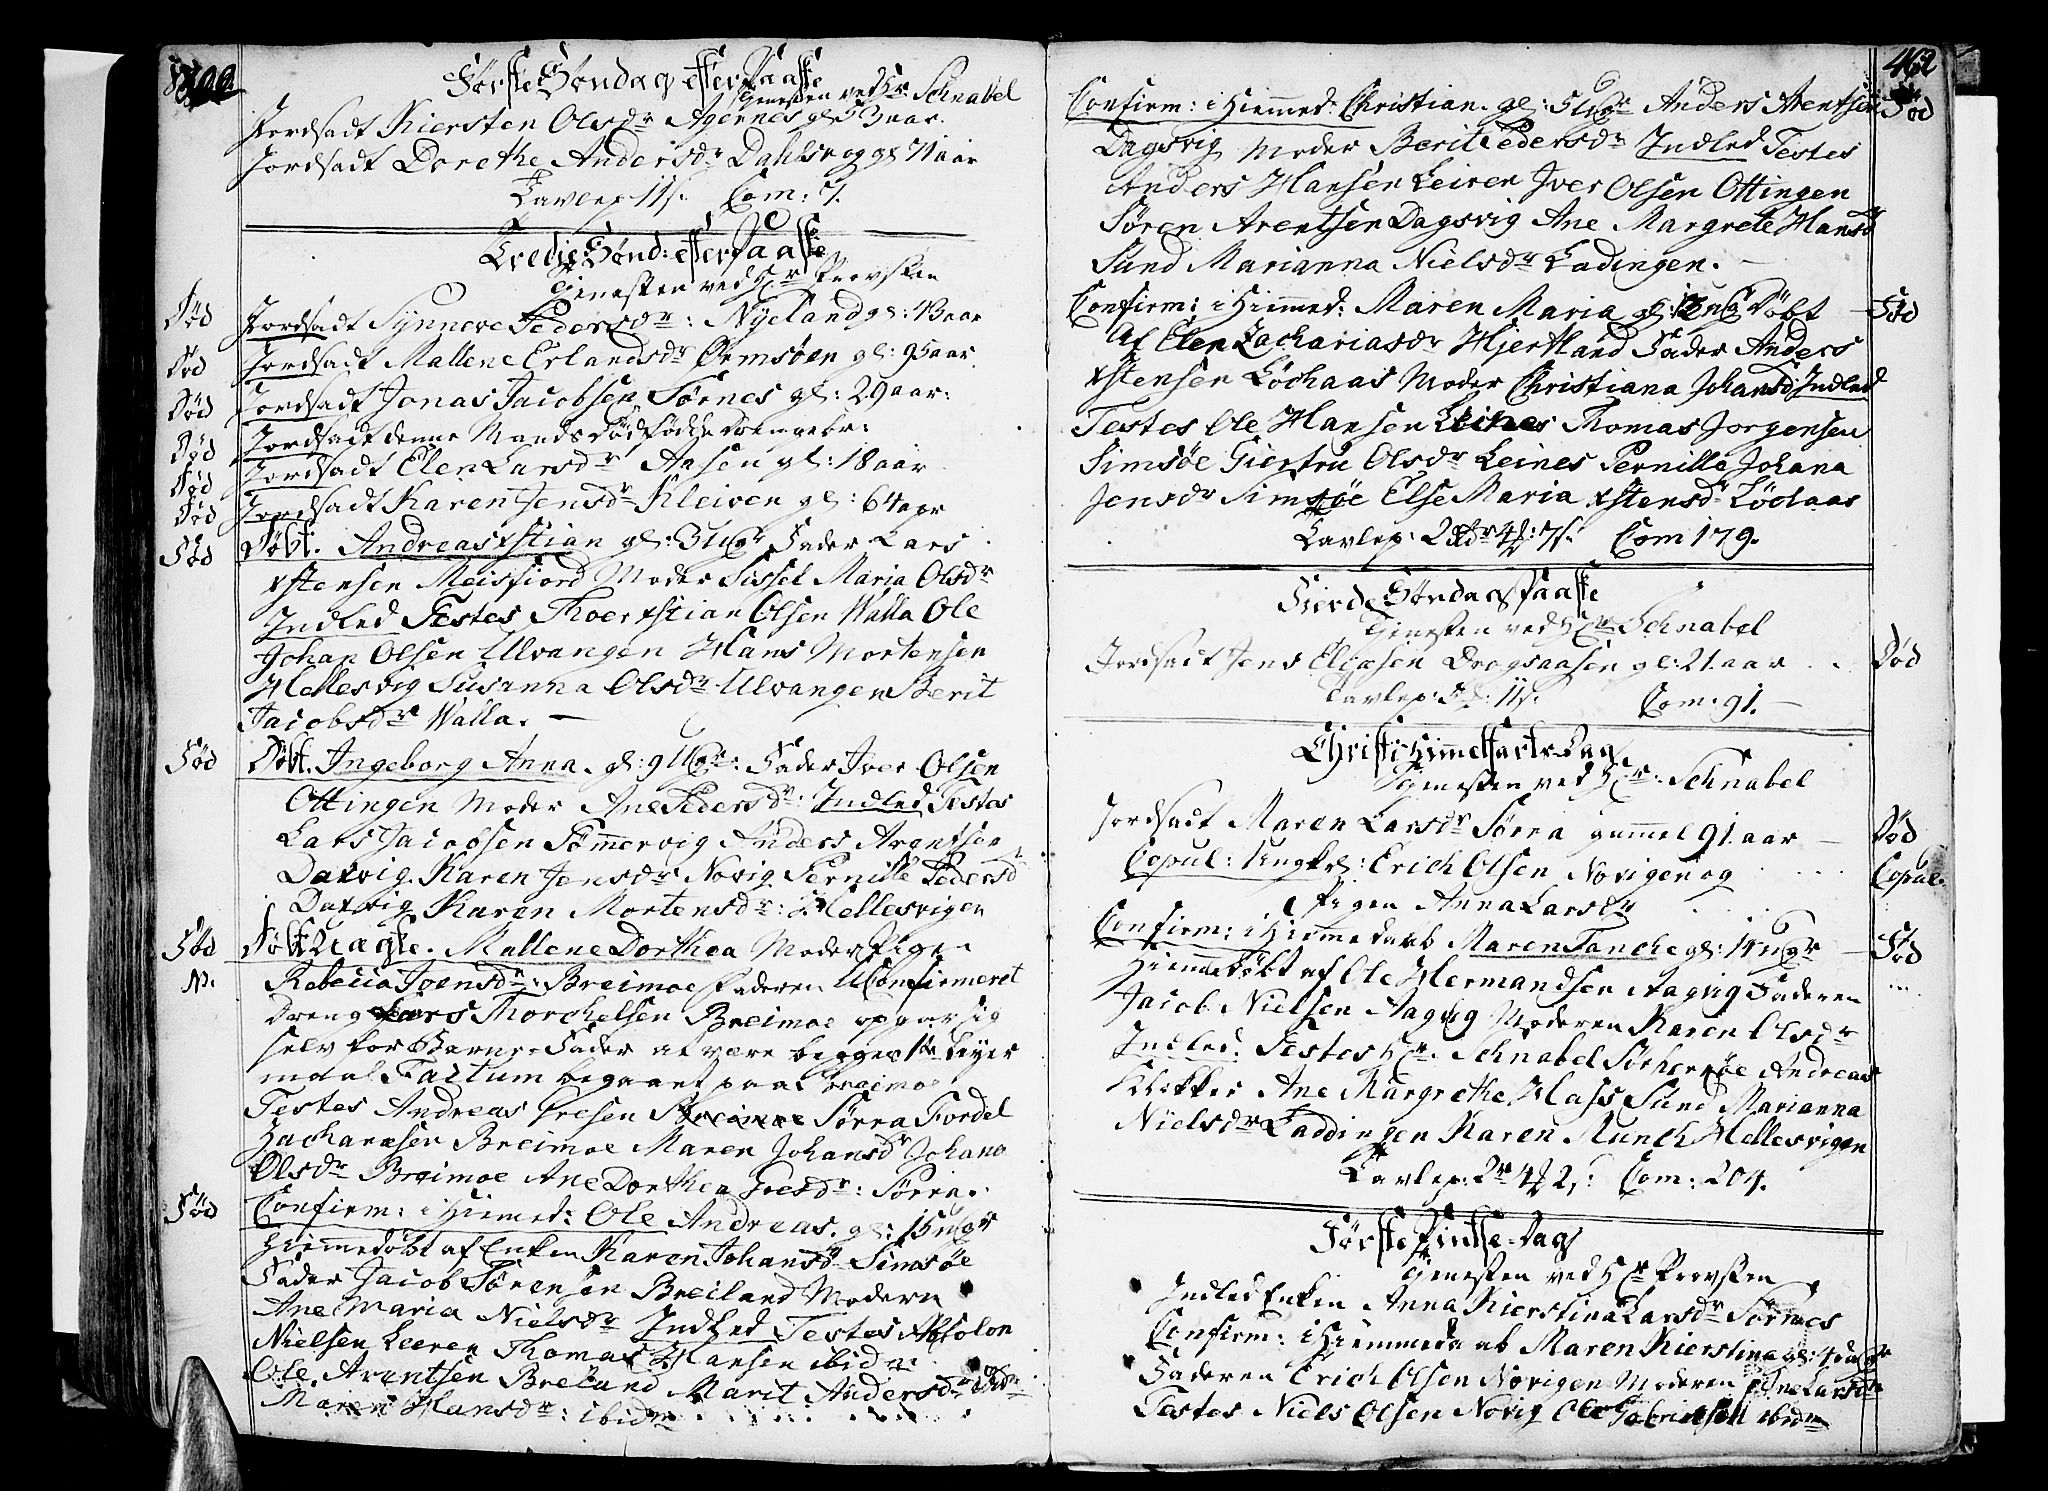 Første Søndag efter Paaske
Tjenesten ved Hr Schnabel
Jordsadt Kiersten Olsdr Agernes gl 53 aar.
Jordsadt Dorethe Andersdr Dahlsvog gl 71 aar
Tavlep: 11 s. Com: 7.
Tredie Sønd: efter Paaske
Tjenesten ved Hr Provsten
Død Jordsadt Synneve Pedersdr: Nyeland gl: 43 aar
Død Jordsadt Mallene Erlandsdr Ørmsøen gl: 95 aar
Død Jordsadt Jonas Jacobsen Sørnes gl: 29 aar:
Død Jordsadt denne Mands Dødfødde Drengebr:
Død Jordsadt Elen Larsdr Aasen gl: 18 aar
Død Jordsadt Karen Jensdr Kleiven gl: 64 aar
Fød Døbt. Andreas xstian gl: 3 Ugr Fader Lars
xstensen Meisfiord Moder Sissel Maria Olsdr
Indled Testes Thoer xstian Olsen Walla Ole
Johan Olsen Ulvangen Hans Mortensen
Hellesvig Susanna Olsdr Ulvangen Berit
Jacobsdr Walla. —
Fød Døbt. Ingeborg Anna. gl: 9 Ugr: Fader Iver Olsen
Ottingen Moder Ane Pedersdr: Indled Testes
Lars Jacobsen Sømmervig Anders Arentsen
Daxvig. Karen Jensdr Novig Pernille Pedersd
Daxvig Karen Mortensdr: Hellesvigen
Fød Døbt Uægte. Mallene Dorthea Moder Pigen
N. Rebecca Joensdr: Breimoe Faderen UConfirmeret
Dreng Lars Thorchelsen Breimoe opgav sig
selv for Barne-Fader at være begges 1ste Leyer
maal Factum begaaet paa Breimoe
Testes Andreas Iversen Breimoe Sørra Fordel
Zachariæsen Breimoe Maren Johansdr Johana
Olsdr Breimoe Ane Dorthea Joesdr: Sørra.
Fød Confirm: i Hiemed: Ole Andreas. gl: 15 Ugr
Hiemmedøbt af Enken Karen Johansd Simsøe
Fader Jacob Sørensen Breiland Modern
Ane Maria Nielsdr Indled Testes Absolon
Nielsen Leeren Thomas Hansen ibidm:
Ole Arentsen Breland Marit Andersdr ibidm
Maren Hansdr: ibidm
462
Confirm: i Hiemmed: Christian. gl: 5 Ugr Anders Arentsen Fød
Dagsvig Moder Berit Pedersdr Indled Testes
Anders Hansen Leiren Iver Olsen Ottingen
Søren Arentsen Dagsvig Ane Margrete Hansdr
Sund Marianna Nielsdr Ladingen. —
Confirm: i Hiemmed: Maren Maria gl: Døbt Fød
Af Elen Zachariasdr Hjertland Fader Anders
xstensen Lødhaas Moder Christiana Johansd Indled
Testes Ole Hansen Leines Thomas Jorgensen
Simsøe Giertru Olsdr Leines Pernille Johana
Jensdr Simsøe Else Maria xstensdr Lødhaas
Tavlep: 2 Rdr 4 : 7 s. Com 179.
Fierde Søndag Paaske
Tjenesten ved Hr Schnabel
Jordsadt Jens Eliasen Dragsaasen gl: 21. aar Død
Tavlep: : 11 s. Com: 91. —
Christi Himmelfarts-Dag
Tjenesten ved Hr: Schnabel
Jordsadt Maren Larsdr Sørra gammel 91. aar Død
Copul: Ungkrl: Erich Olsen Novigen og Copul.
Pigen Anna Larsdr
Confirm: i Hiemmedaab Maren Tanche gl: 14 Ugr Fød
Hiemmedøbt af Ole Hermandsen Aagvig Faderen
Jacob Nielsen Aagvig Moderen Karen Olsdr
Indled: Testes Hr. Schnabel Sørherøe Andreas
Klokker Ane Margrethe Hass Sund Marianna
Nielsdr Laddingen Karen Munch Hellesvigen
Tavlep: 2 4 2 s: Com: 204.
Første Pintse-Dag
Tjenesten ved Hr Provsten
Indled Enken Anna Kierstina Larsdr Sørnes
Confirm: i Hiemmedaab Maren Kierstina gl: 4 Ugr
Faderen Erich Olsen Novigen Moderen Ane Larsdr
Testes Niels Olsen Novig Ole Gabrielsen ibidm